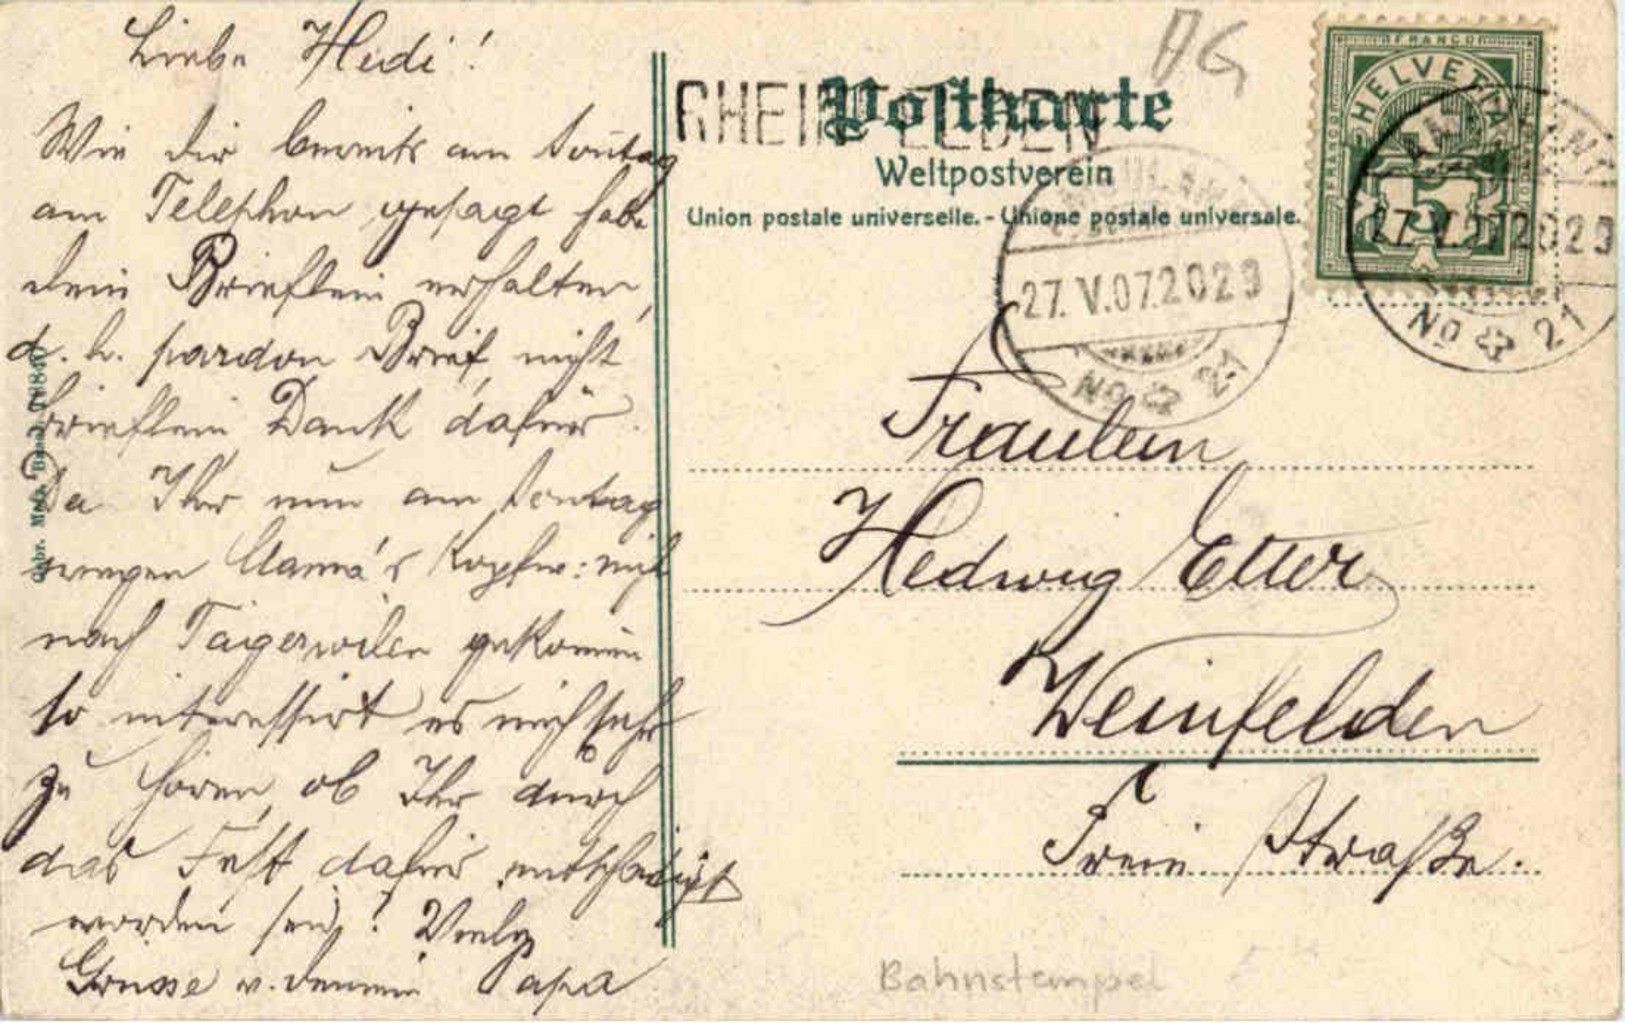 Liebe Hedi!
Wie dir bereits am Sontag
am Telephon gesagt habe
dein Brieflein erhalten,
d. h. pardon Brief, nicht
Brieflein Dank dafür.
Da Ihr nun am Sontag
wegen Mama's Kopfw: nicht
nach Tägerwilen gekommen
so interessirt es mich sehr
zu hören, ob Ihr durch
das Fest dafür entschädigt
worden seid? Viele
Grüsse v. deinem Papa
AG
RHEINFELDEN
Postkarte
Weltpostverein
Union postale universelle. - Unione postale universale.
FRANCO
HELVETIA
FRANCO
FRANCO
5
27.V.07.2029
No 21
AMBULANT
27.V.07.2029
No 21
Fräulein
Hedwig Etter
Weinfelden
Freie Straße.
Bahnstempel
Gebr.